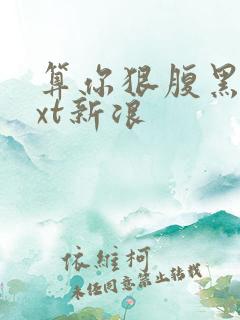 算你狠腹黑
xt新浪
依维柯
未经同意禁止转载